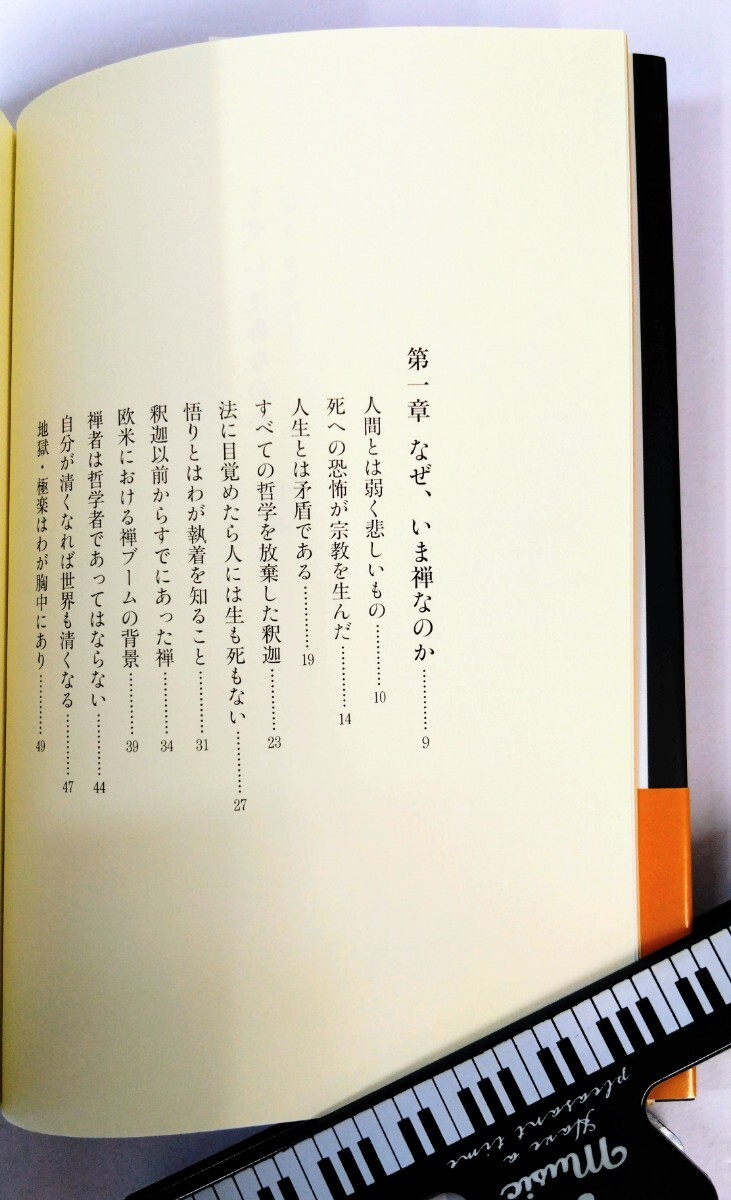 第一章 なぜ、いま禅なのか…………9
人間とは弱く悲しいもの…………10
死への恐怖が宗教を生んだ…………14
人生とは矛盾である…………19
すべての哲学を放棄した釈迦…………23
法に目覚めたら人には生も死もない…………27
悟りとはわが執着を知ること…………31
釈迦以前からすでにあった禅…………34
欧米における禅ブームの背景…………39
禅者は哲学者であってはならない…………44
自分が清くなれば世界も清くなる…………47
地獄・極楽はわが胸中にあり…………49
Have a
pleasant time
Music